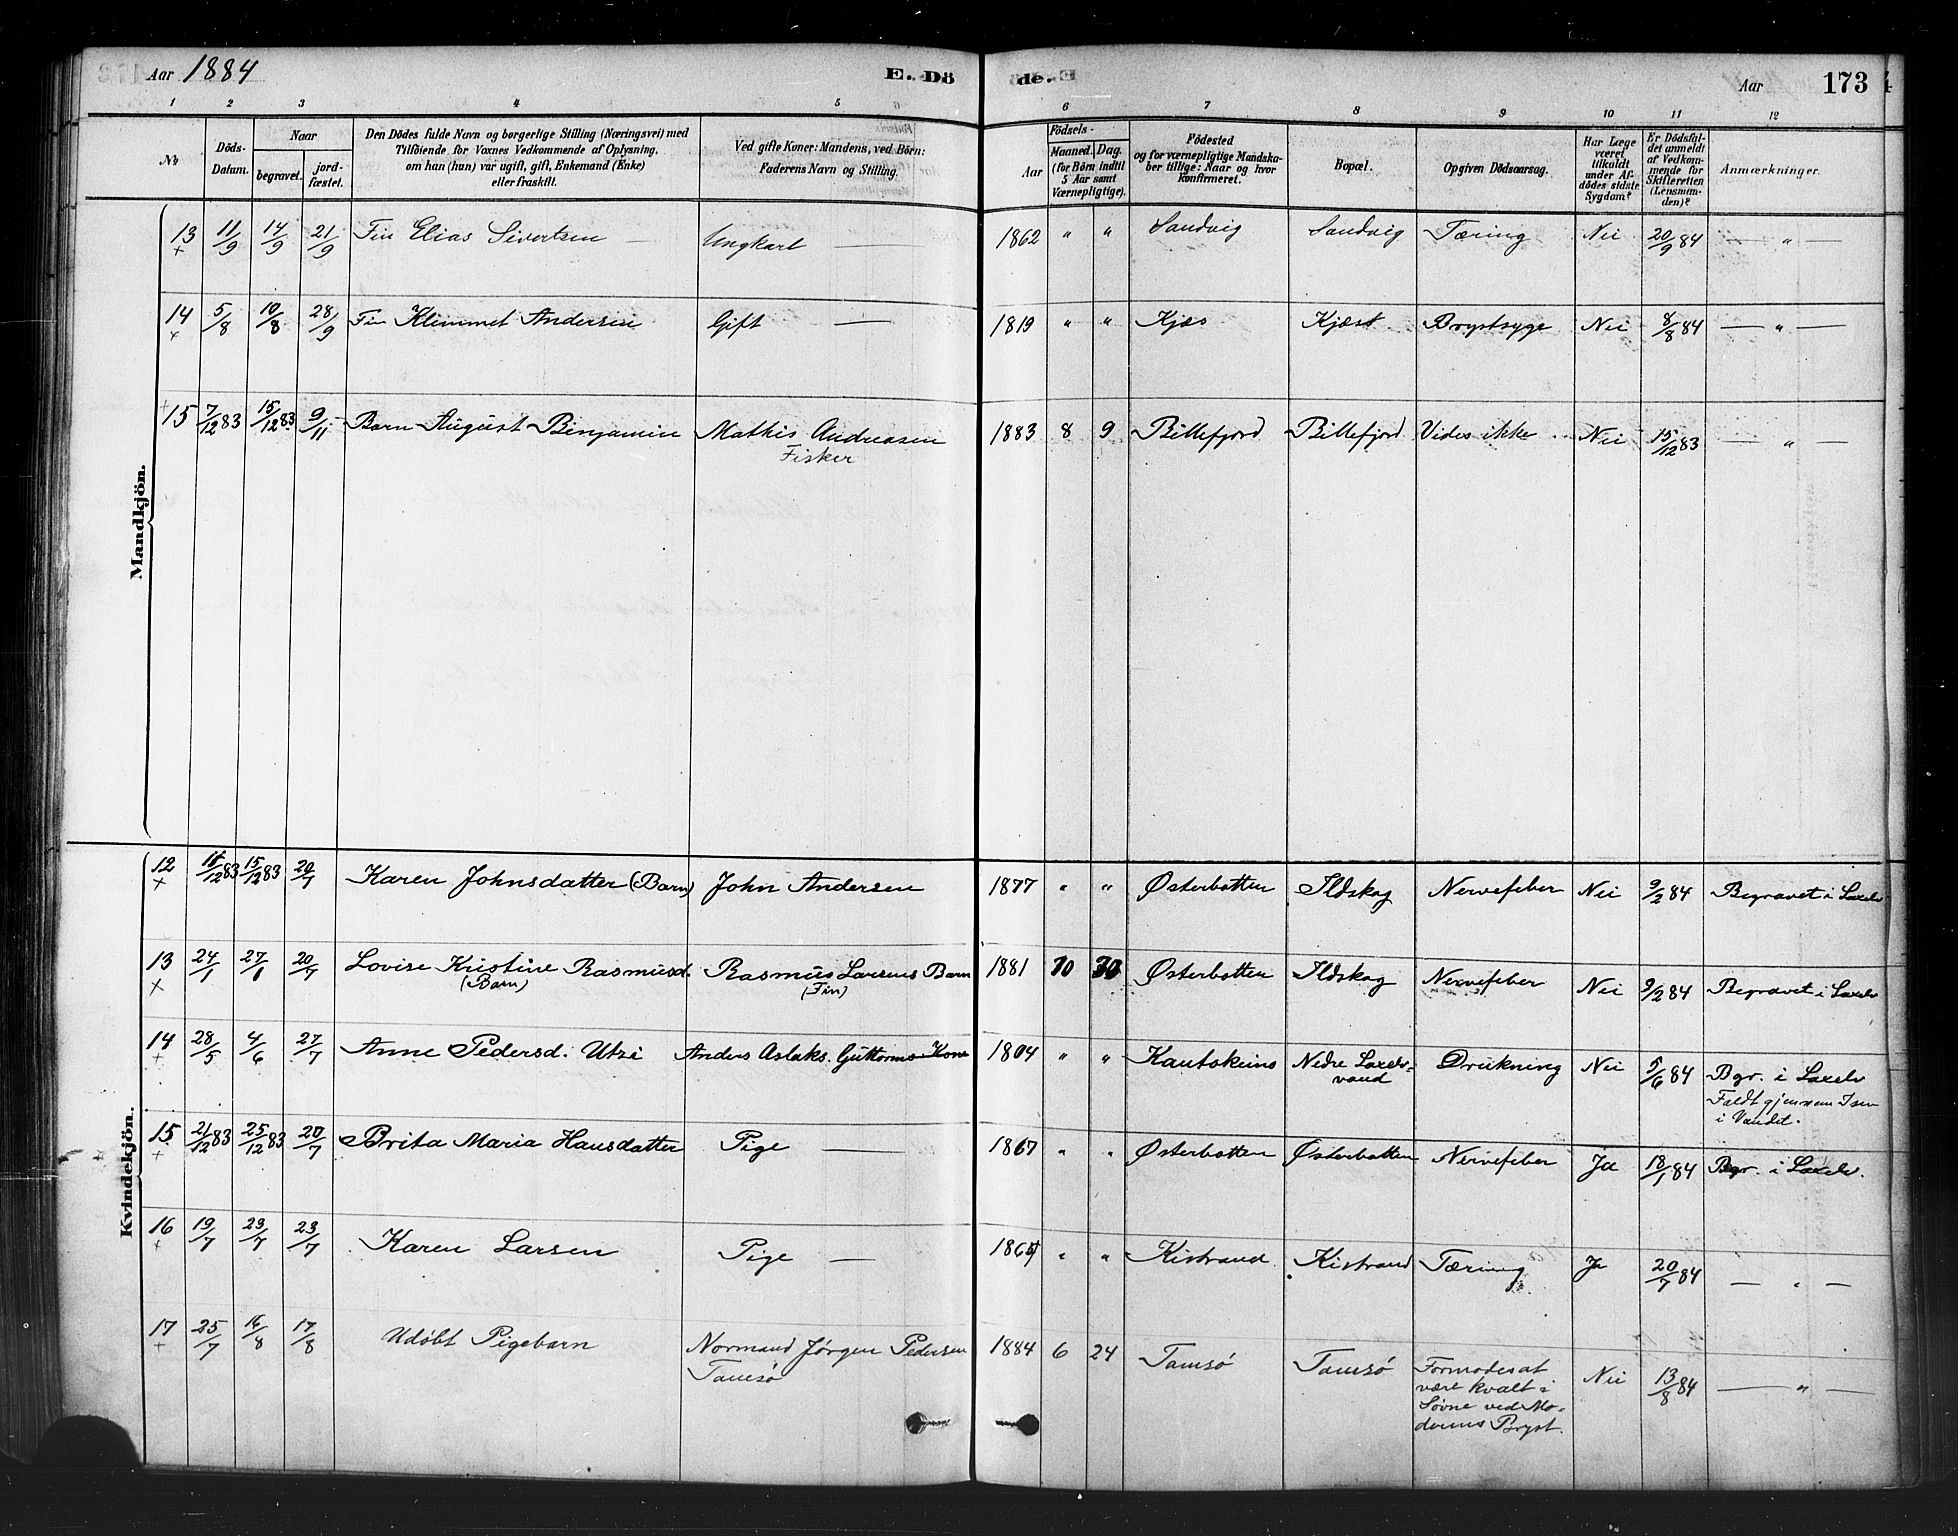 Aar 1884
E. Dö
de.
Aar
173
1 2 3 4 5 6 7 8 9 10 11 12
No
Döds-
Datum.
Naar
begravet.
jord-
fæstet.
Den Dödes fulde Navn og borgerlige Stilling (Næringsvei) med
Tilföiende for Voxnes Vedkommende af Oplysning,
om han (hun) var ugift, gift, Enkemand (Enke)
eller fraskilt.
Ved gifte Koner: Mandens, ved Börn:
Faderens Navn og Stilling.
Födsels-
Aar
Maaned. Dag.
(for Börn indtil
5 Aar samt
Værnepligtige).
Födested
og for værnepligtige Mandska-
ber tillige: Naar og hvor
konfirmeret.
Bopæl.
Opgiven Dödsaarsag.
Har Læge
været
tilkaldt
under Af-
dödes sidste
Sygdom?
Er Dödsfal-
det anmeldt
af Vedkom-
mende for
Skifteretten
(Lensman-
den)?
Anmærkninger.
Mandkjön.
13 11/9 14/9 21/9 Fin Elias Sivertsen — Ungkarl — 1862 " " Sandvig Sandvig Tæring Nei 20/9 84 — " —
14 5/8 10/8 28/9 Fin Klemmet Andersen Gift — 1819 " " Kjæs Kjæs Brystsyge Nei 8/8 84 — " —
15 7/12 83 15/12 83 9/11 Barn August Benjamin Mathis Andreasen 1883 8 9 Billefjord Billefjord Vides ikke Nei 15/12 83 — " —
Fisker
Kvindekjön.
12 11/12 83 15/12 83 20/7 Karen Johnsdatter (Barn) John Andersen 1877 " " Østerbotten Ildskog Nervefeber Nei 9/2 84 Begravet i Laxelv
13 24/1 27/1 20/7 Lovise Kristine Rasmusd. Rasmus Larsens Barn 1881 10 30 Østerbotten Ildskog Nervefeber Nei 9/2 84 Begravet i Laxelv
(Barn) (Fin)
14 28/5 4/6 27/7 Anne Pedersd. Utsi Anders Aslaks. Guttorms Kone 1804 " " Kautokeino Nedre Laxelv- Drukning Nei 5/6 84 Bgr. i Laxelv
vand
Faldt gjennem Isen
i Vandet.
15 21/12 83 25/12 83 20/7 Brita Maria Hansdatter Pige — 1867 " " Østerbotten Østerbotten Nervefeber Ja 18/1 84 Bgr. i Laxelv.
16 19/7 23/7 23/7 Karen Larsen Pige — " " Kistrand Kistrand Tæring Ja 20/7 84 — " —
17 25/7 /8 17/8 Udøbt Pigebarn Normand Jørgen Pedersen 1884 6 24 Tamsø Tamsø Formodes at Nei 13/8 84 — " —
Tamsø
være kvalt i
Søvne ved Mo-
derens Bryst.